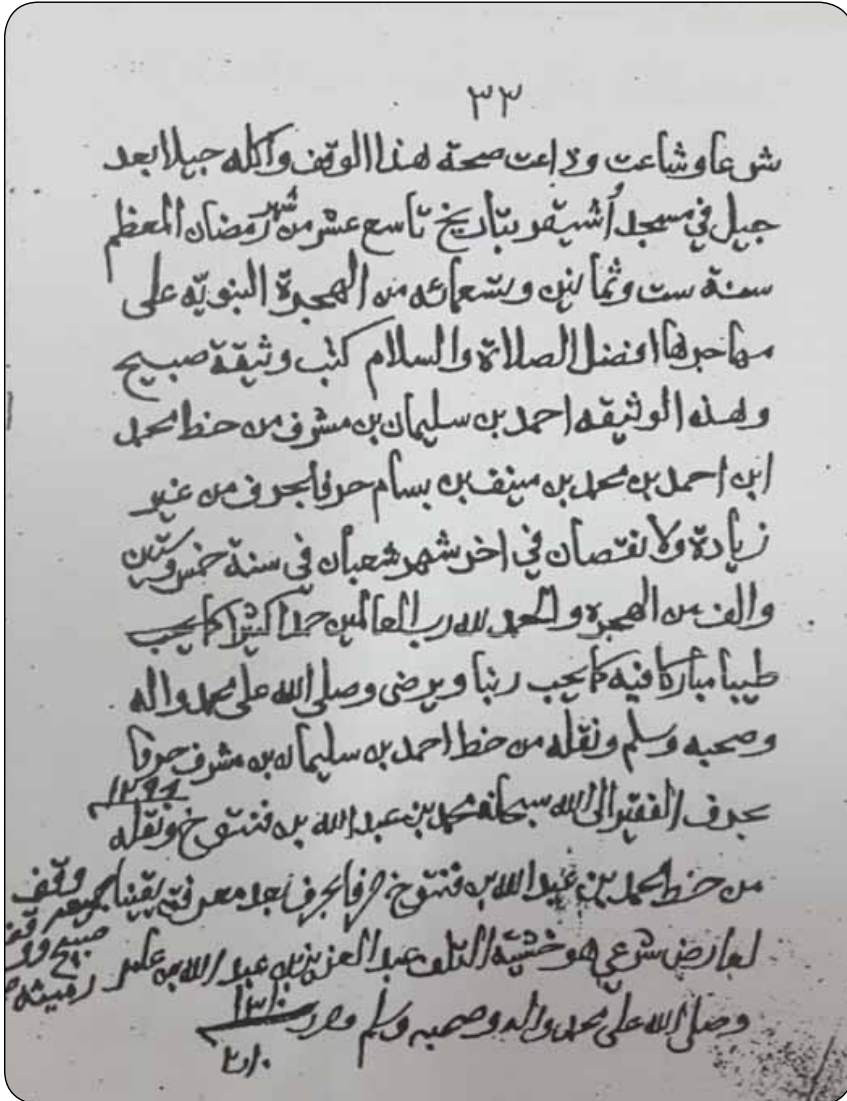 ٣٣
شرعا وشاعت وذاعت صحة هذا الوقف وأكله جيلا بعد
جيل في مسجد أُشيقر بتاريخ تاسع عشر من شهر رمضان المعظم
سنة ست وثمانين وتسعمائه من الهجرة النبويّه على
مهاجرها افضل الصلاة والسلام كتب وثيقة صبيح
وهذه الوثيقه احمد بن سليمان بن مشرف من خط محمد
ابن احمد بن محمد بن منيف بن بسام حرفا بحرف من غير
زيادة ولا نقصان في اخر شهر شعبان في سنة خمس وستين
والف من الهجره والحمد لله رب العالمين حمدا كثيرا كما يحب
طيبا مباركا فيه كما يحب ربنا ويرضى وصلى الله على محمد واله
وصحبه وسلم ونقله من خط احمد بن سليمان بن مشرف حرفا
بحرف الفقير الى الله سبحانه محمد بن عبد الله بن فنتوخ ونقله
من خط محمد بن عبد الله بن فنتوخ حرفا بحرف بعد معرفته يقينا وقف
لعارض شرعي هو خشية التلف عبد العزيز بن عبد الله بن عامر صبيح رميثه
وصلى الله على محمد واله وصحبه وسلم